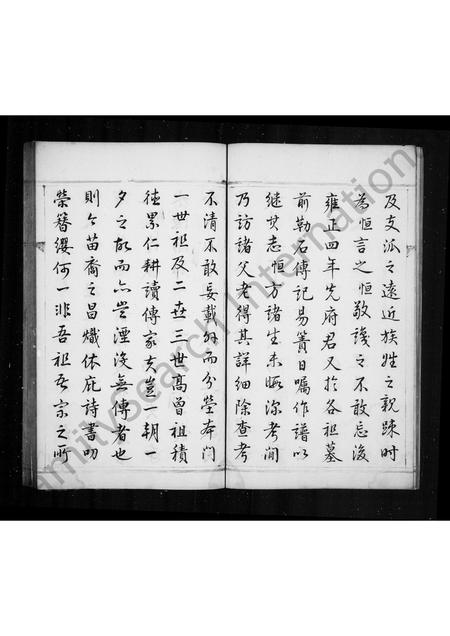 及支派之遠近族姓之親踈时
為恒言之恒敬識之不敢忘後
雍正四年先府君又於各祖墓
前勒石傳記易簀日嘱作譜以
継其志恒方諸生未暇深考間
乃訪諸父老得其詳细除查考
不清不敢妄載外而分塋本门
一世祖及二世三世髙曾祖積
徳累仁耕讀傳家夫豈一朝一
夕之故而亦豈湮没無傳者也
則今苗裔之昌熾依庇詩書叨
榮簪缨何一非吾祖吾宗之所
FamilySearch International